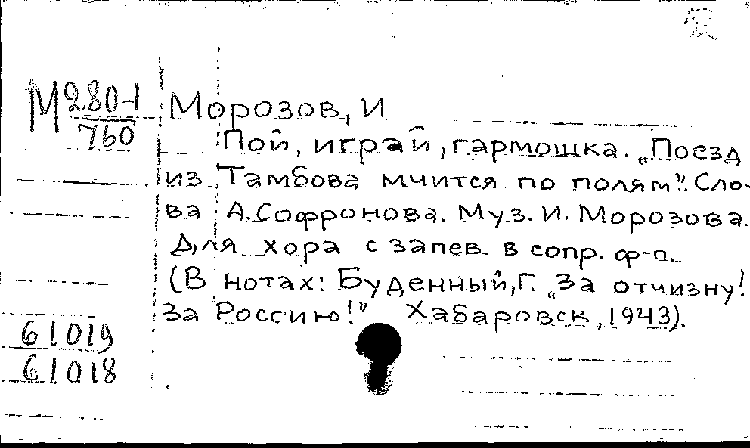 М280-1
760
Морозов, И
Пой, играй, гармошка. „Поезд
из Тамбова мчится по полям". Сло-
ва А. Софронова. Муз. И. Морозова.
Для хора с запев. в сопр. ф-п.
(В нотах: Буденный, Г. „За отчизну!
За Россию!" Хабаровск, 1943).
61019
61018